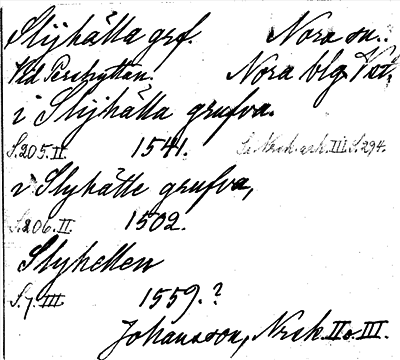 Slijhälla grf. Nora sn.
Vid Pershyttan. Nora blg. Vstm.
i Slijhälla grufva.
S. 205. II. 1541. Se Nrck. ark. III. S. 294.
i Slyhätte grufva,
S. 206. II. 1502.
Slyhellen
S. 7. III. 1559.?
Johansson, Nrck. II o. III.